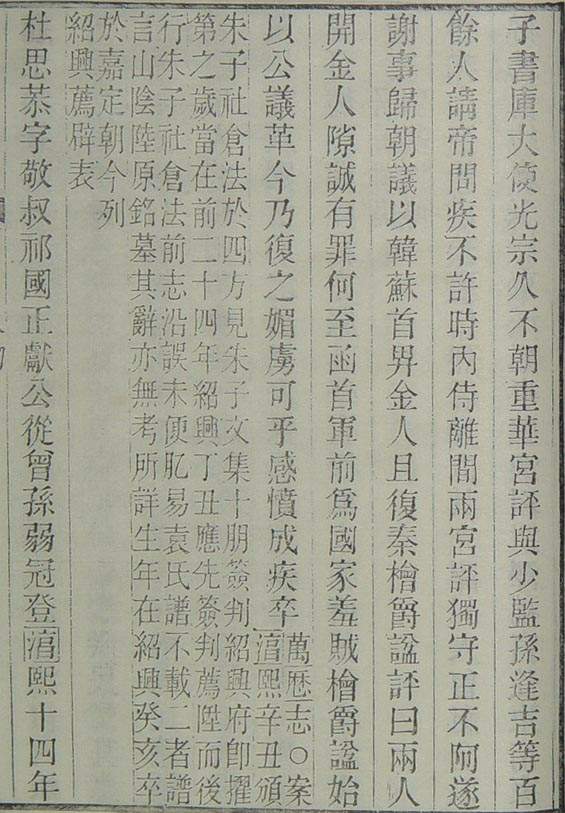 子書庫大使光宗久不朝重華宮評與少監孫逢吉等百
餘人請帝問疾不許時內侍離間兩宮評獨守正不阿遂
謝事歸朝議以韓蘇首畀金人且復秦檜爵諡評曰兩人
開金人隙誠有罪何至函首軍前爲國家羞賊檜爵諡始
以公議革今乃復之媚虜可乎感憤成疾卒
萬歷志○案
湻熙辛丑頒
朱子社倉法於四方見朱子文集十朋簽判紹興府卽擢
第之歲當在前二十四年紹興丁丑應先簽判薦陞而後
行朱子社倉法前志沿誤未便肊易袁氏譜不載二者譜
言山陰陸原銘墓其辭亦無考所詳生年在紹興癸亥卒
於嘉定朝今列
紹興薦辟表
杜思恭字敬叔祁國正獻公從曾孫弱冠登湻熙十四年